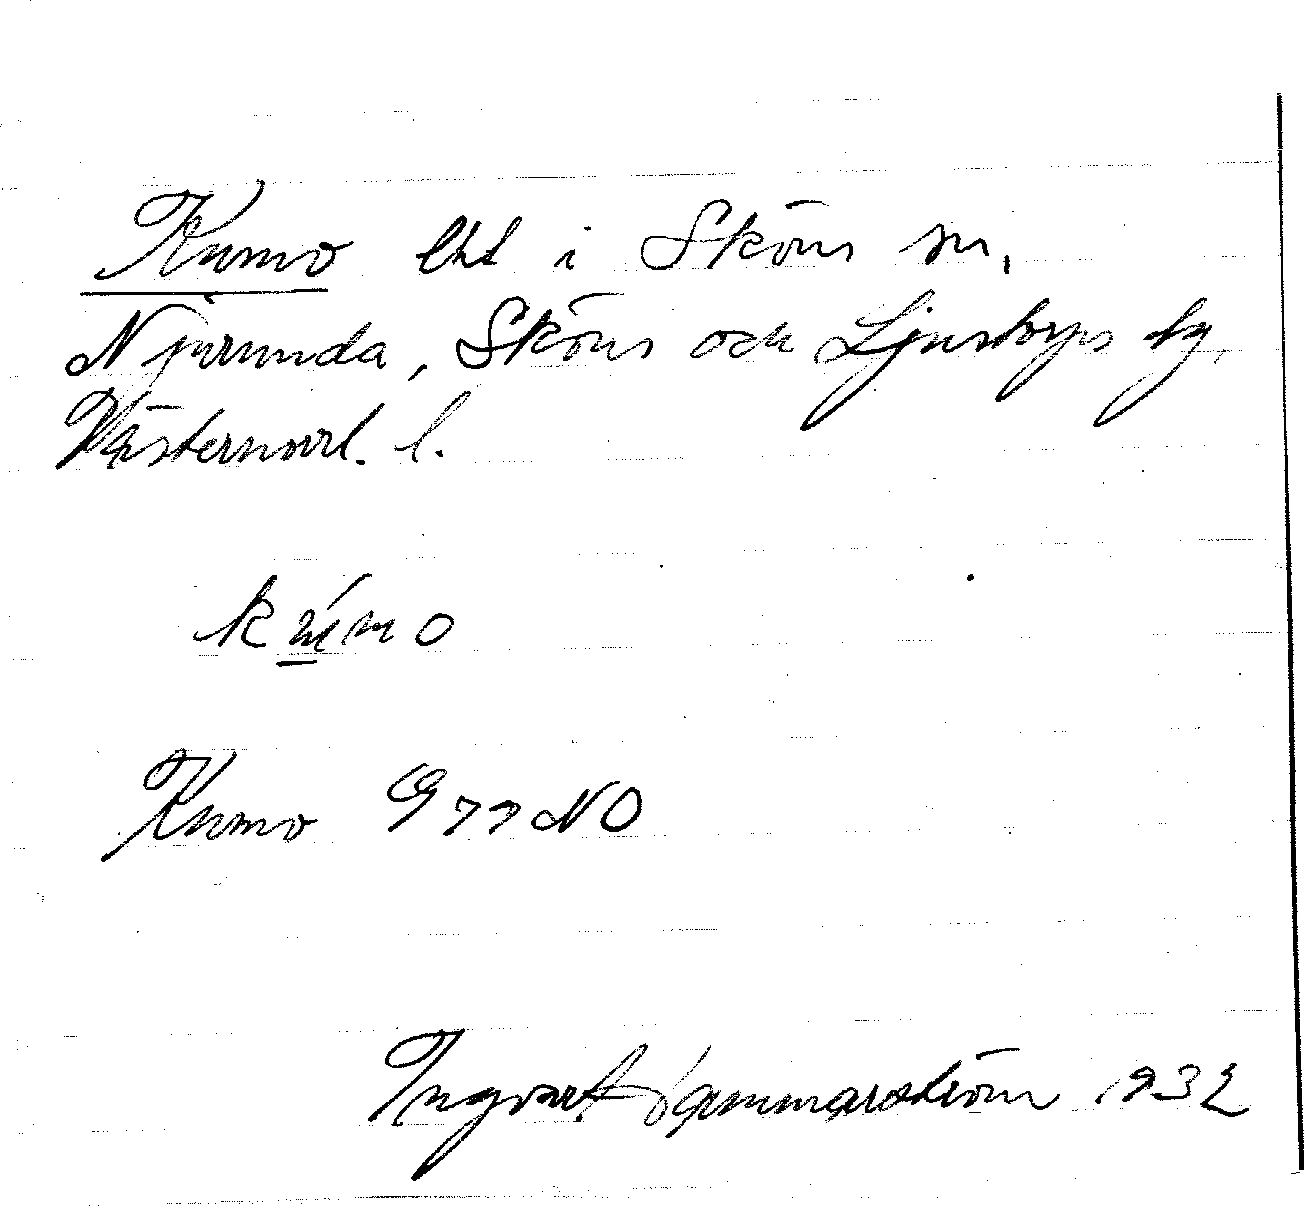 Kumo lht i Sköns sn,
Njurunda, Sköns och Ljustorps tg,
Västernorrl. l.
kúmo
Kumo G 77 NO
Ingvart Hammarström 1932